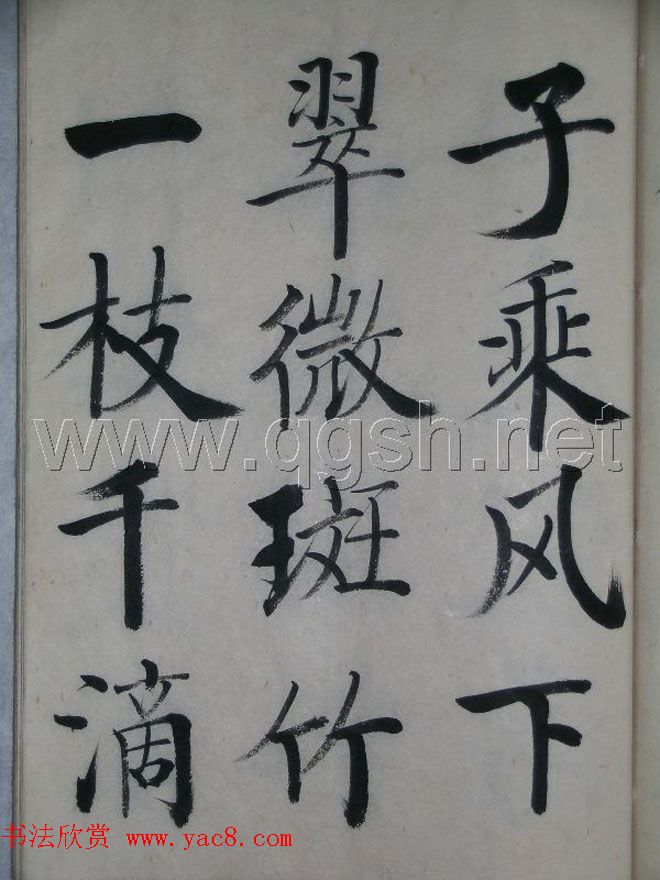 子乘风下
翠微斑竹
一枝千滴
www.qgsh.net
书法欣赏 www.yac8.com